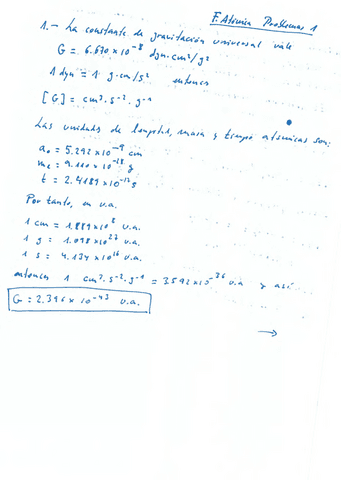 F. Atómica Problemas 1
1.- La constante de gravitación universal vale
G = 6.670 × 10⁻⁸ dyn·cm²/g²
1 dyn = 1 g·cm/s² entonces
[G] = cm³·s⁻²·g⁻¹
Las unidades de longitud, masa y tiempo atómicas son:
a₀ = 5.292 × 10⁻⁹ cm
mₑ = 9.110 × 10⁻²⁸ g
t = 2.4189 × 10⁻¹⁷ s
Por tanto, en u.a.
1 cm = 1.889 × 10⁸ u.a.
1 g = 1.098 × 10²⁷ u.a.
1 s = 4.134 × 10¹⁶ u.a.
entonces 1 cm³·s⁻²·g⁻¹ = 3.592 × 10⁻³⁶ u.a y así
G = 2.396 × 10⁻⁴³ u.a.
→